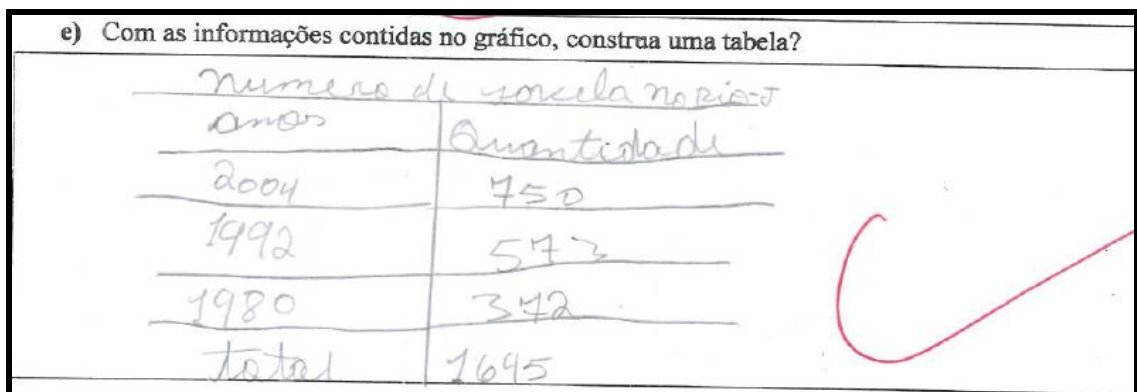 e) Com as informações contidas no gráfico, construa uma tabela?
numero de no Rio-J
anos Quantidade
2004 750
1992 573
1980 372
total 1695